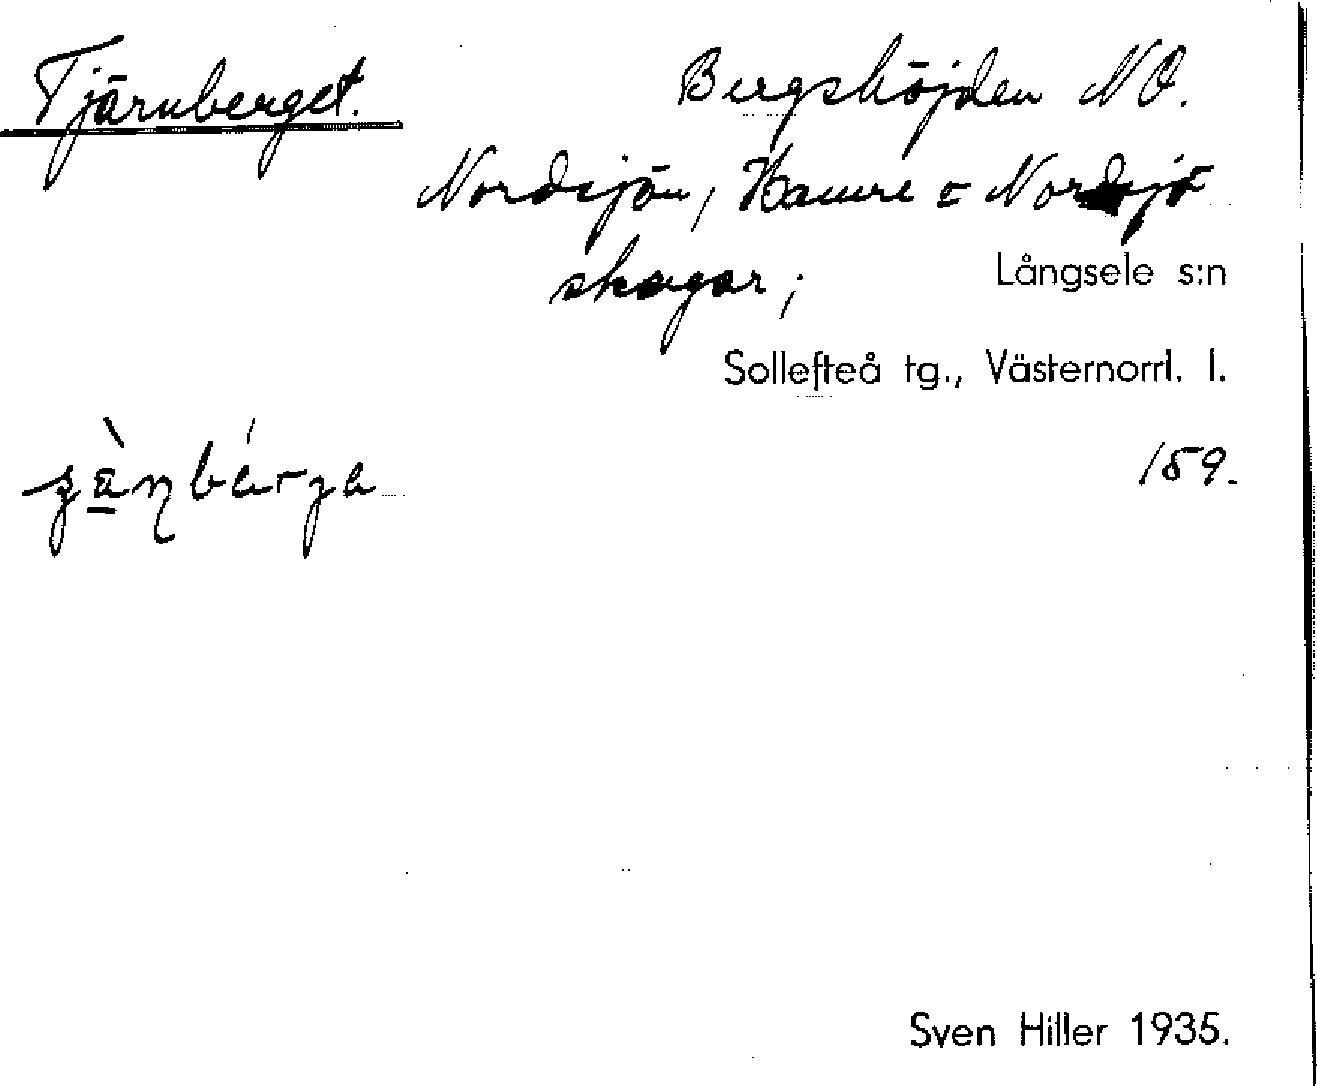 Tjärnberget. Bergshöjden NO.
Nordsjön, Hamre o Nordsjö
skogar; Långsele s:n
Sollefteå tg., Västernorrl. l.
159.
Sven Hiller 1935.